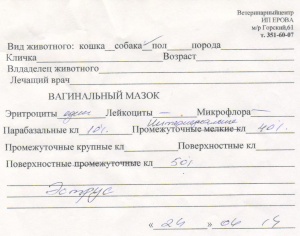 Ветеринарныйцентр
ИП ЕРОВА
м/р Горский,61
т. 351-60-07
Вид животного: кошка собака пол порода
Кличка Возраст
Владелец животного
Лечащий врач
ВАГИНАЛЬНЫЙ МАЗОК
Эритроциты един Лейкоциты – Микрофлора –
Парабазальные кл 10% Промежуточные мелкие кл 40%
Промежуточные крупные кл Поверхностные кл
Поверхностные промежуточные кл 50%
Эструс
« 24 » 04 14